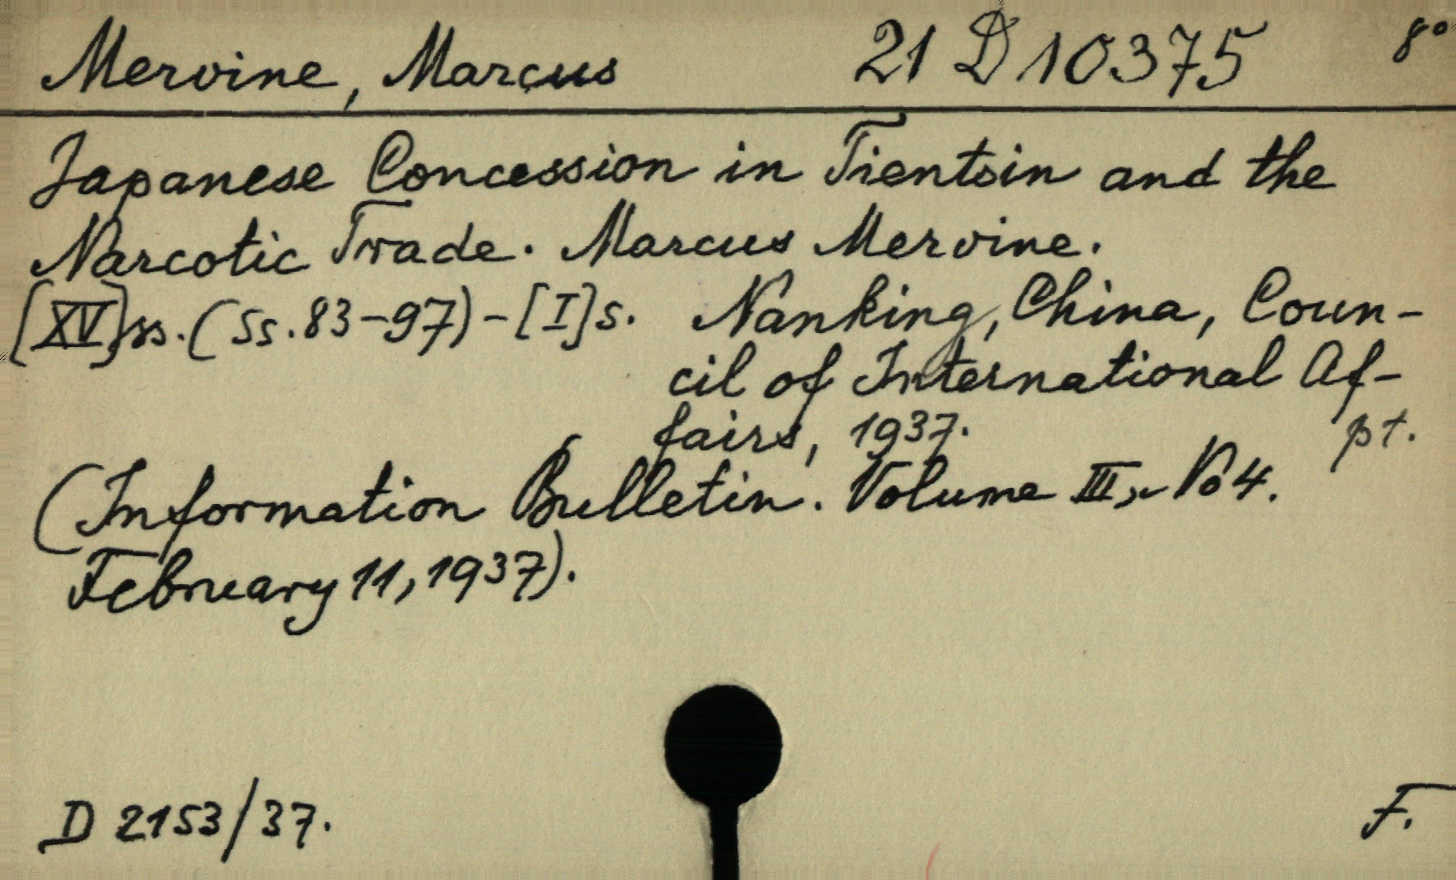 Mervine, Marcus 21 D 10375 8°
Japanese Concession in Tientsin and the
Narcotic Trade. Marcus Mervine.
[XV]ss. (Ss. 83-97) - [I]s. Nanking, China, Coun-
cil of International Af-
fairs, 1937. pt.
(Information Bulletin. Volume III, No 4.
February 11, 1937).
D 2153/37. F.